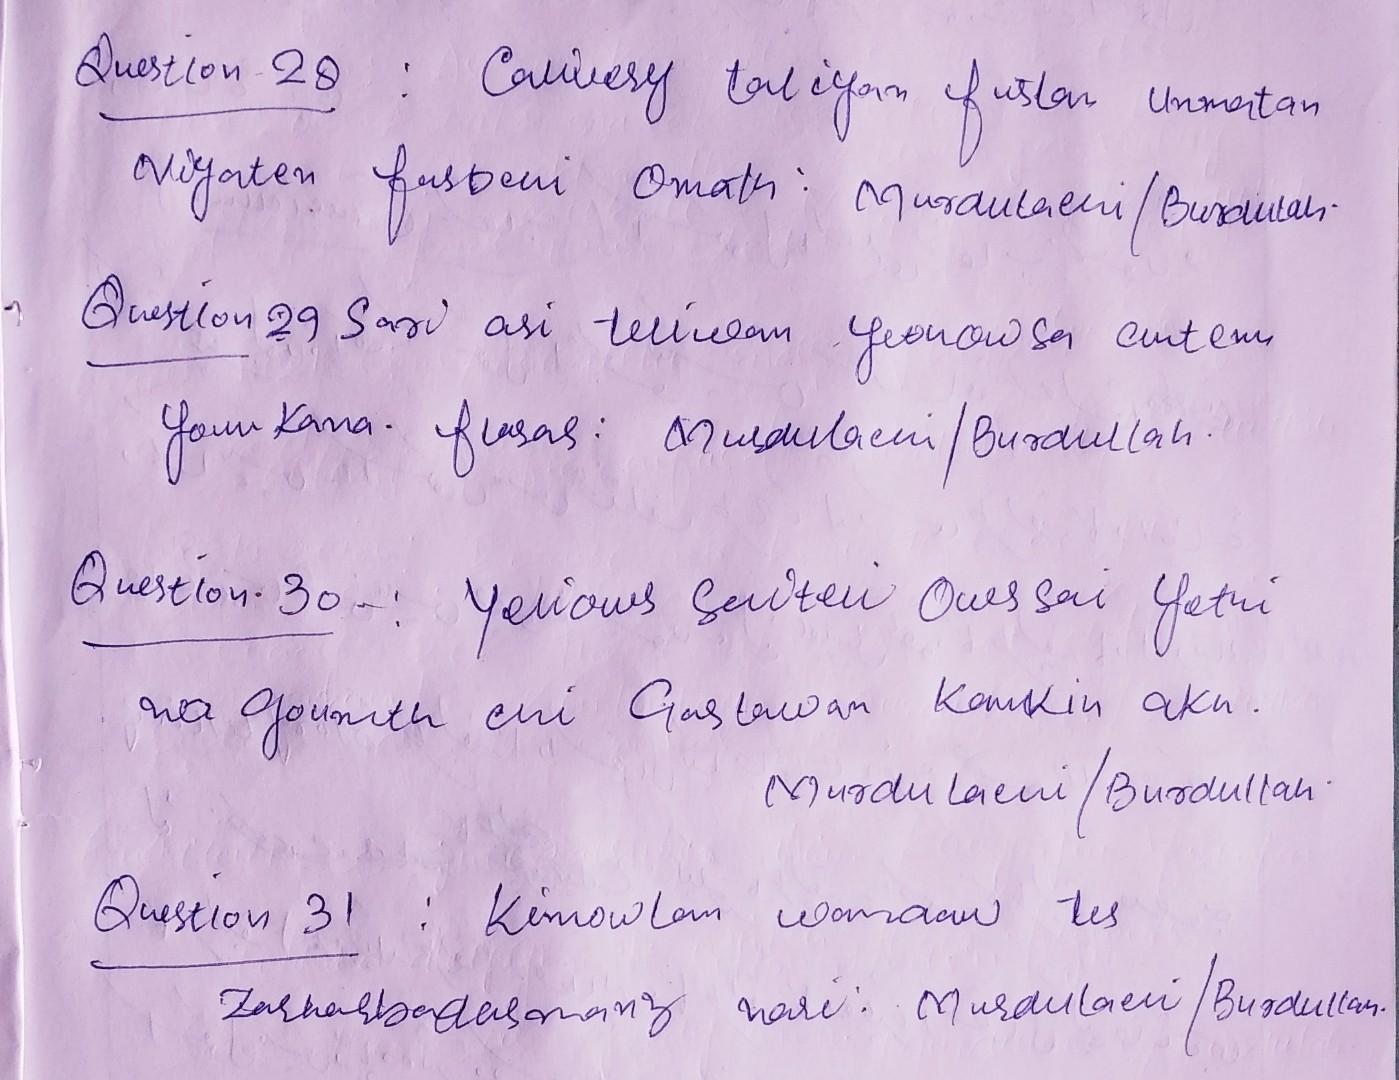 Question 28 : Cauvery taliyan fustan unmatan
Niyaten fasbeui Omath: Murdulaeui/Burdullah.
Question 29 Sari asi teliwan yeonowsa cutem
Youn Kana. flasas: Murdulaeui/Burdullah.
Question 30 -: Yeliows Seuiteii Oues sai Yetui
na Gounith cui Gastawan Kamkin aku.
Murdulaeui/Burdullah.
Question 31 : Kimowlam wamaaw tes
Zarharbadasmanz nasi: Murdulaeui/Burdullah.